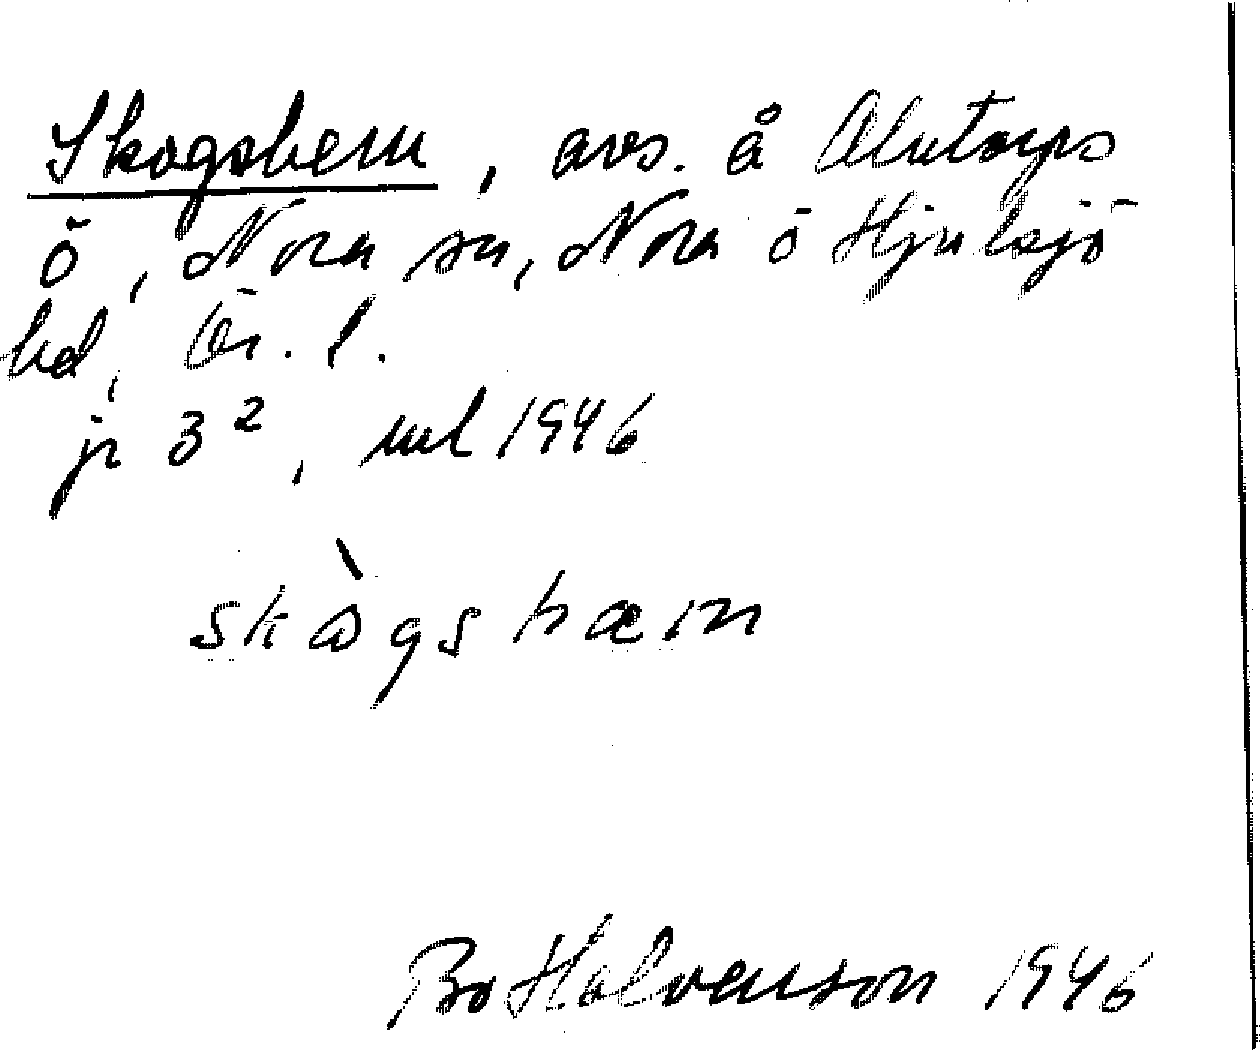 Skogshem, avs. å Alntorps
ö, Nora sn, Nora o Hjulsjö
hd, Ör. l.
jr 3², ml 1946
skògshæm
Bo Halvarsson 1946